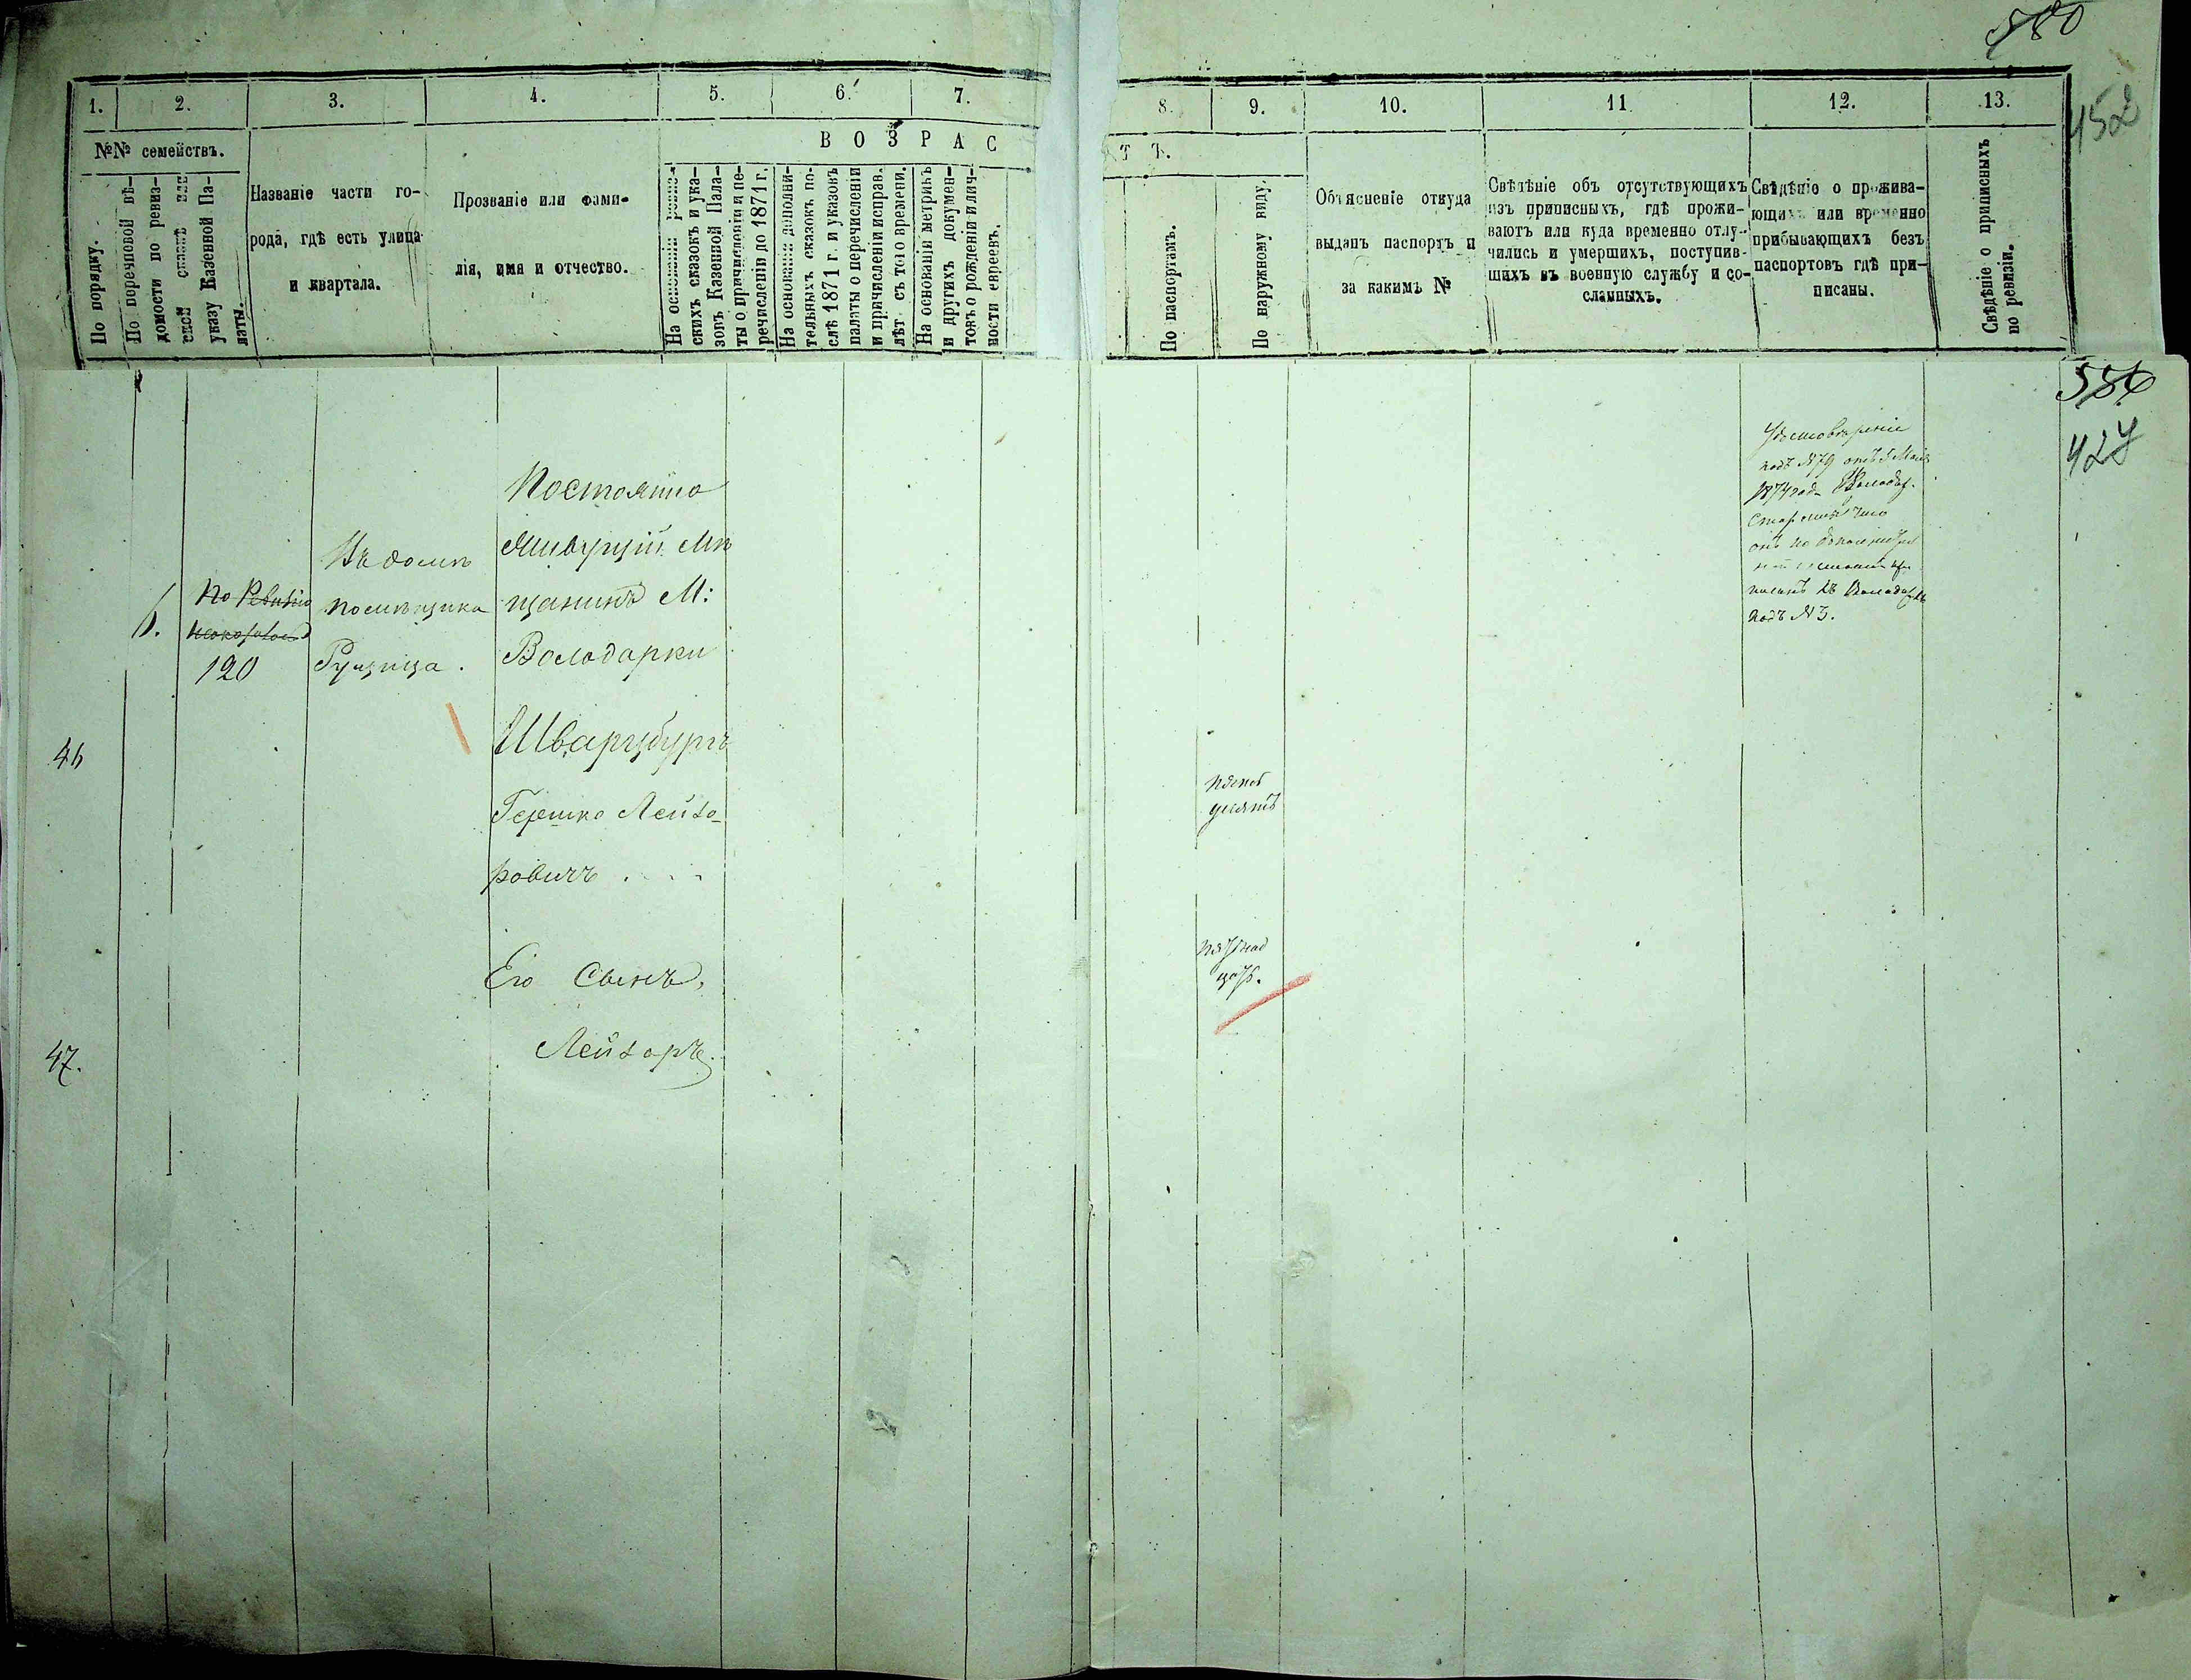 580
452
1. 2. 3. 4. 5. 6. 7. 8. 9. 10. 11 12. 13.
№№ семействъ.
По порядку.
По перечневой вѣ-
домости по ревиз-
ской сказкѣ или
указу Казенной Па-
латы.
Названіе части го-
рода, гдѣ есть улица
и квартала.
Прозваніе или фами-
лія, имя и отчество.
ВОЗРАС
Т Ъ.
На основаніи ревиз-
скихъ сказокъ и ука-
зовъ Казенной Пала-
ты о причисленіи и пе-
речисленіи до 1871 г.
На основаніи дополни-
тельныхъ сказокъ по-
слѣ 1871 г. и указовъ
палаты о перечисленіи
и причисленіи исправ.
лѣт съ того времени.
На основаніи метрикъ
и другихъ докумен-
товъ о рожденіи и лич-
ности евреевъ.
По паспортамъ.
По наружному виду.
Объясненіе откуда
выданъ паспортъ и
за какимъ №
Свѣдѣніе объ отсутствующихъ
изъ приписныхъ, гдѣ прожи-
ваютъ или куда временно отлу-
чились и умершихъ, поступив-
шихъ въ военную службу и со-
сланныхъ.
Свѣдѣніе о прожива-
ющихъ или временно
прибывающихъ безъ
паспортовъ гдѣ при-
писаны.
Свѣдѣніе о приписныхъ
по ревизіи.
586
427
6.
По Ревизіи
120
Въ домѣ
помѣщика
Рущица.
Постоянно
Живущій Мѣ
щанинъ М:
Володарки
46
Шварцбургъ
Гершко Лейзо-
ровичъ . . . .
пять
десятъ
Его Сынъ,
47.
Лейзоръ.
пятнад
цать.
Удостовѣреніе
подъ №79 отъ 5 Мая
1874 года Володар.
Старосты что
онъ по дополнитель
ной сказкѣ при
писанъ къ Володаркѣ
подъ №3.